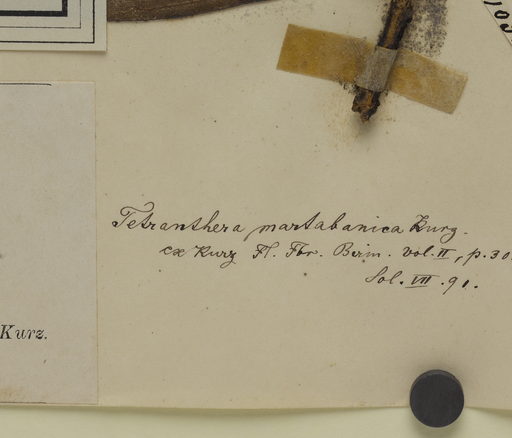 Tetranthera martabanica Kurz.
ex Kurz Fl. For. Birm. vol. II, p. 30
Sol. VII. 91.
Kurz.